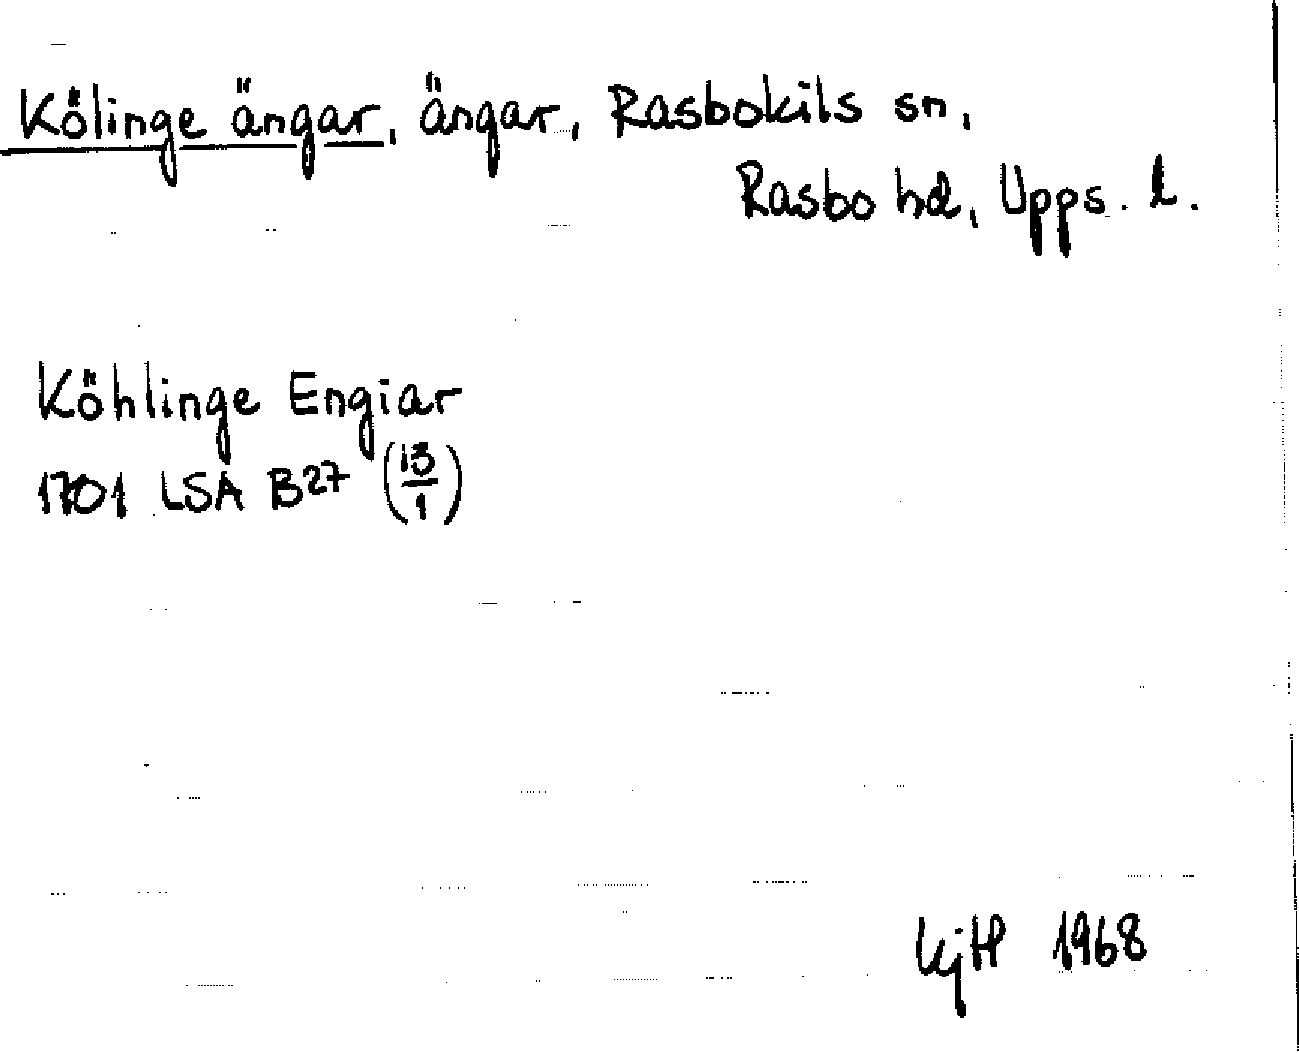 Kölinge ängar, ängar, Rasbokils sn,
Rasbo hd, Upps. l.
Köhlinge Engiar
1701 LSA B27 (13/1)
KjH 1968